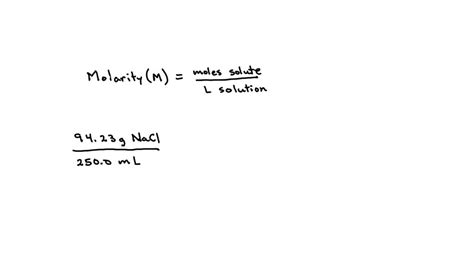 Molarity (M) = moles solute
L solution
94.23g NaCl
250.0 mL